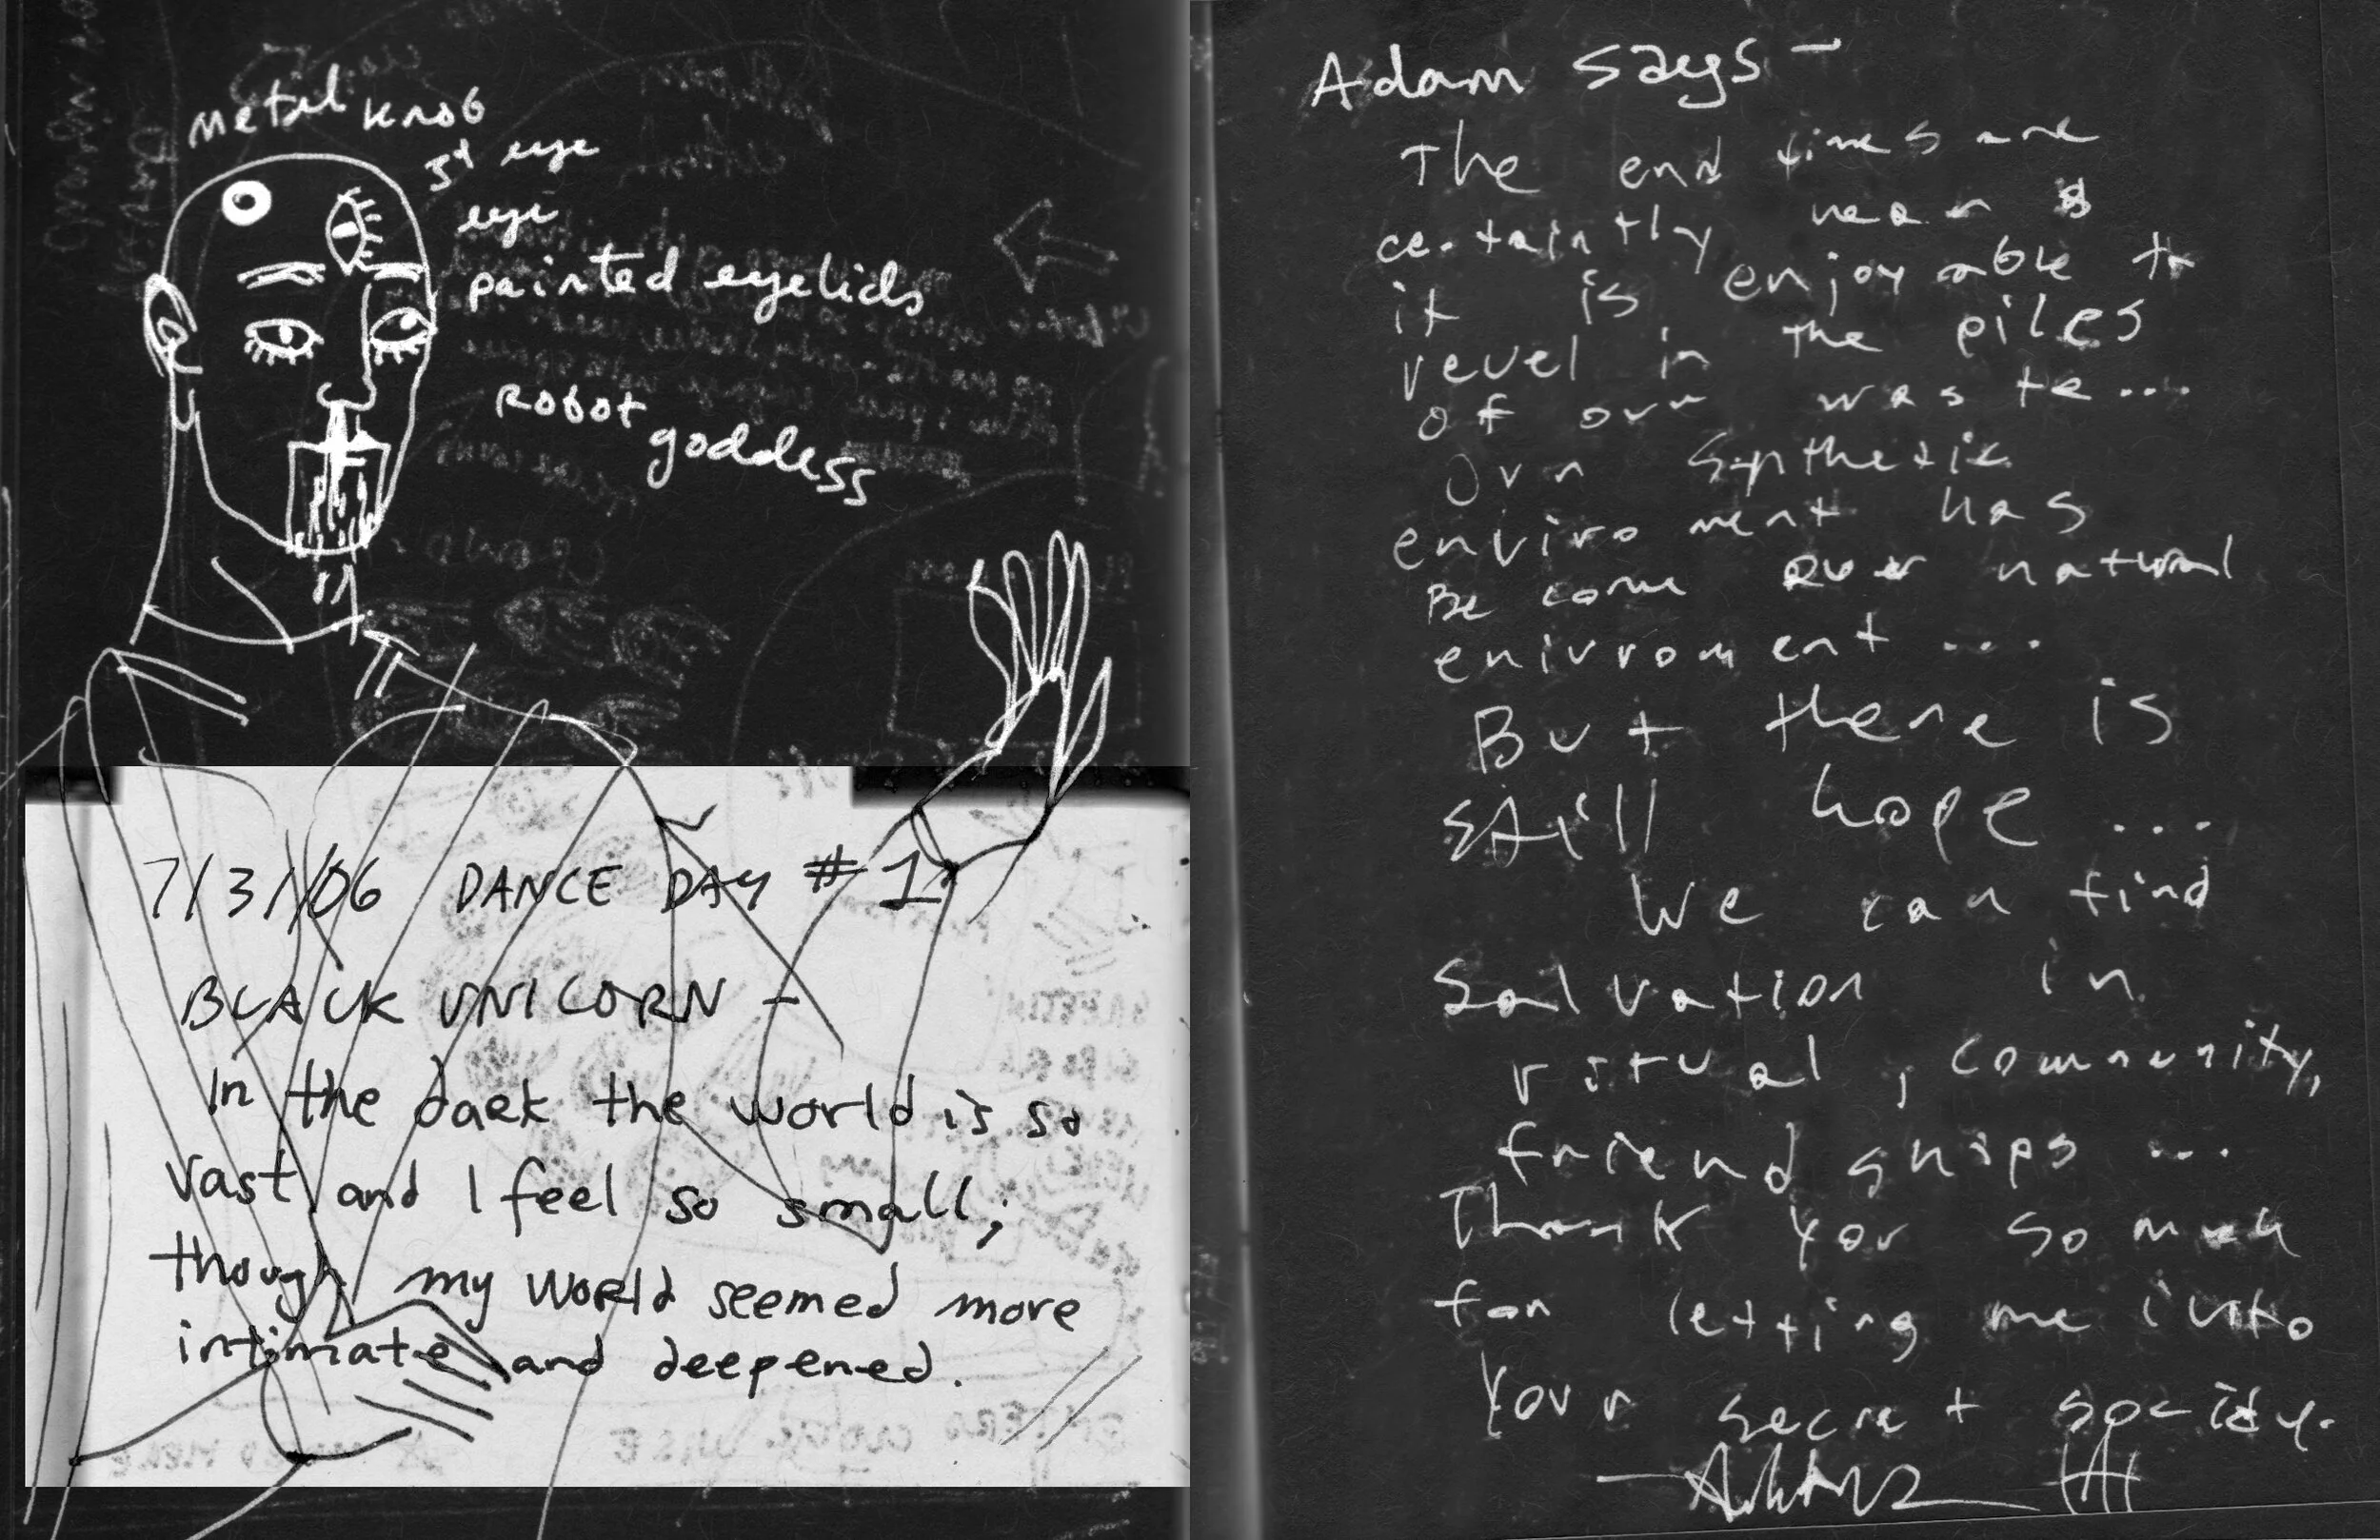 metal knob
3rd eye
eye
painted eyelids
Robot goddess
7/31/06 DANCE DAY #1
BLACK UNICORN -
In the dark the world is so
vast and I feel so small;
though my world seemed more
intimate and deepened.
Adam says -
The end times are
certaintly near &
it is enjoyable to
revel in the piles
of our waste...
Our synthetic
enviroment has
Become our natural
enivroment ...
But there is
still hope ...
We can find
Salvation in
ritual, community,
friendships ...
Thank you so much
for letting me into
Your secret society.